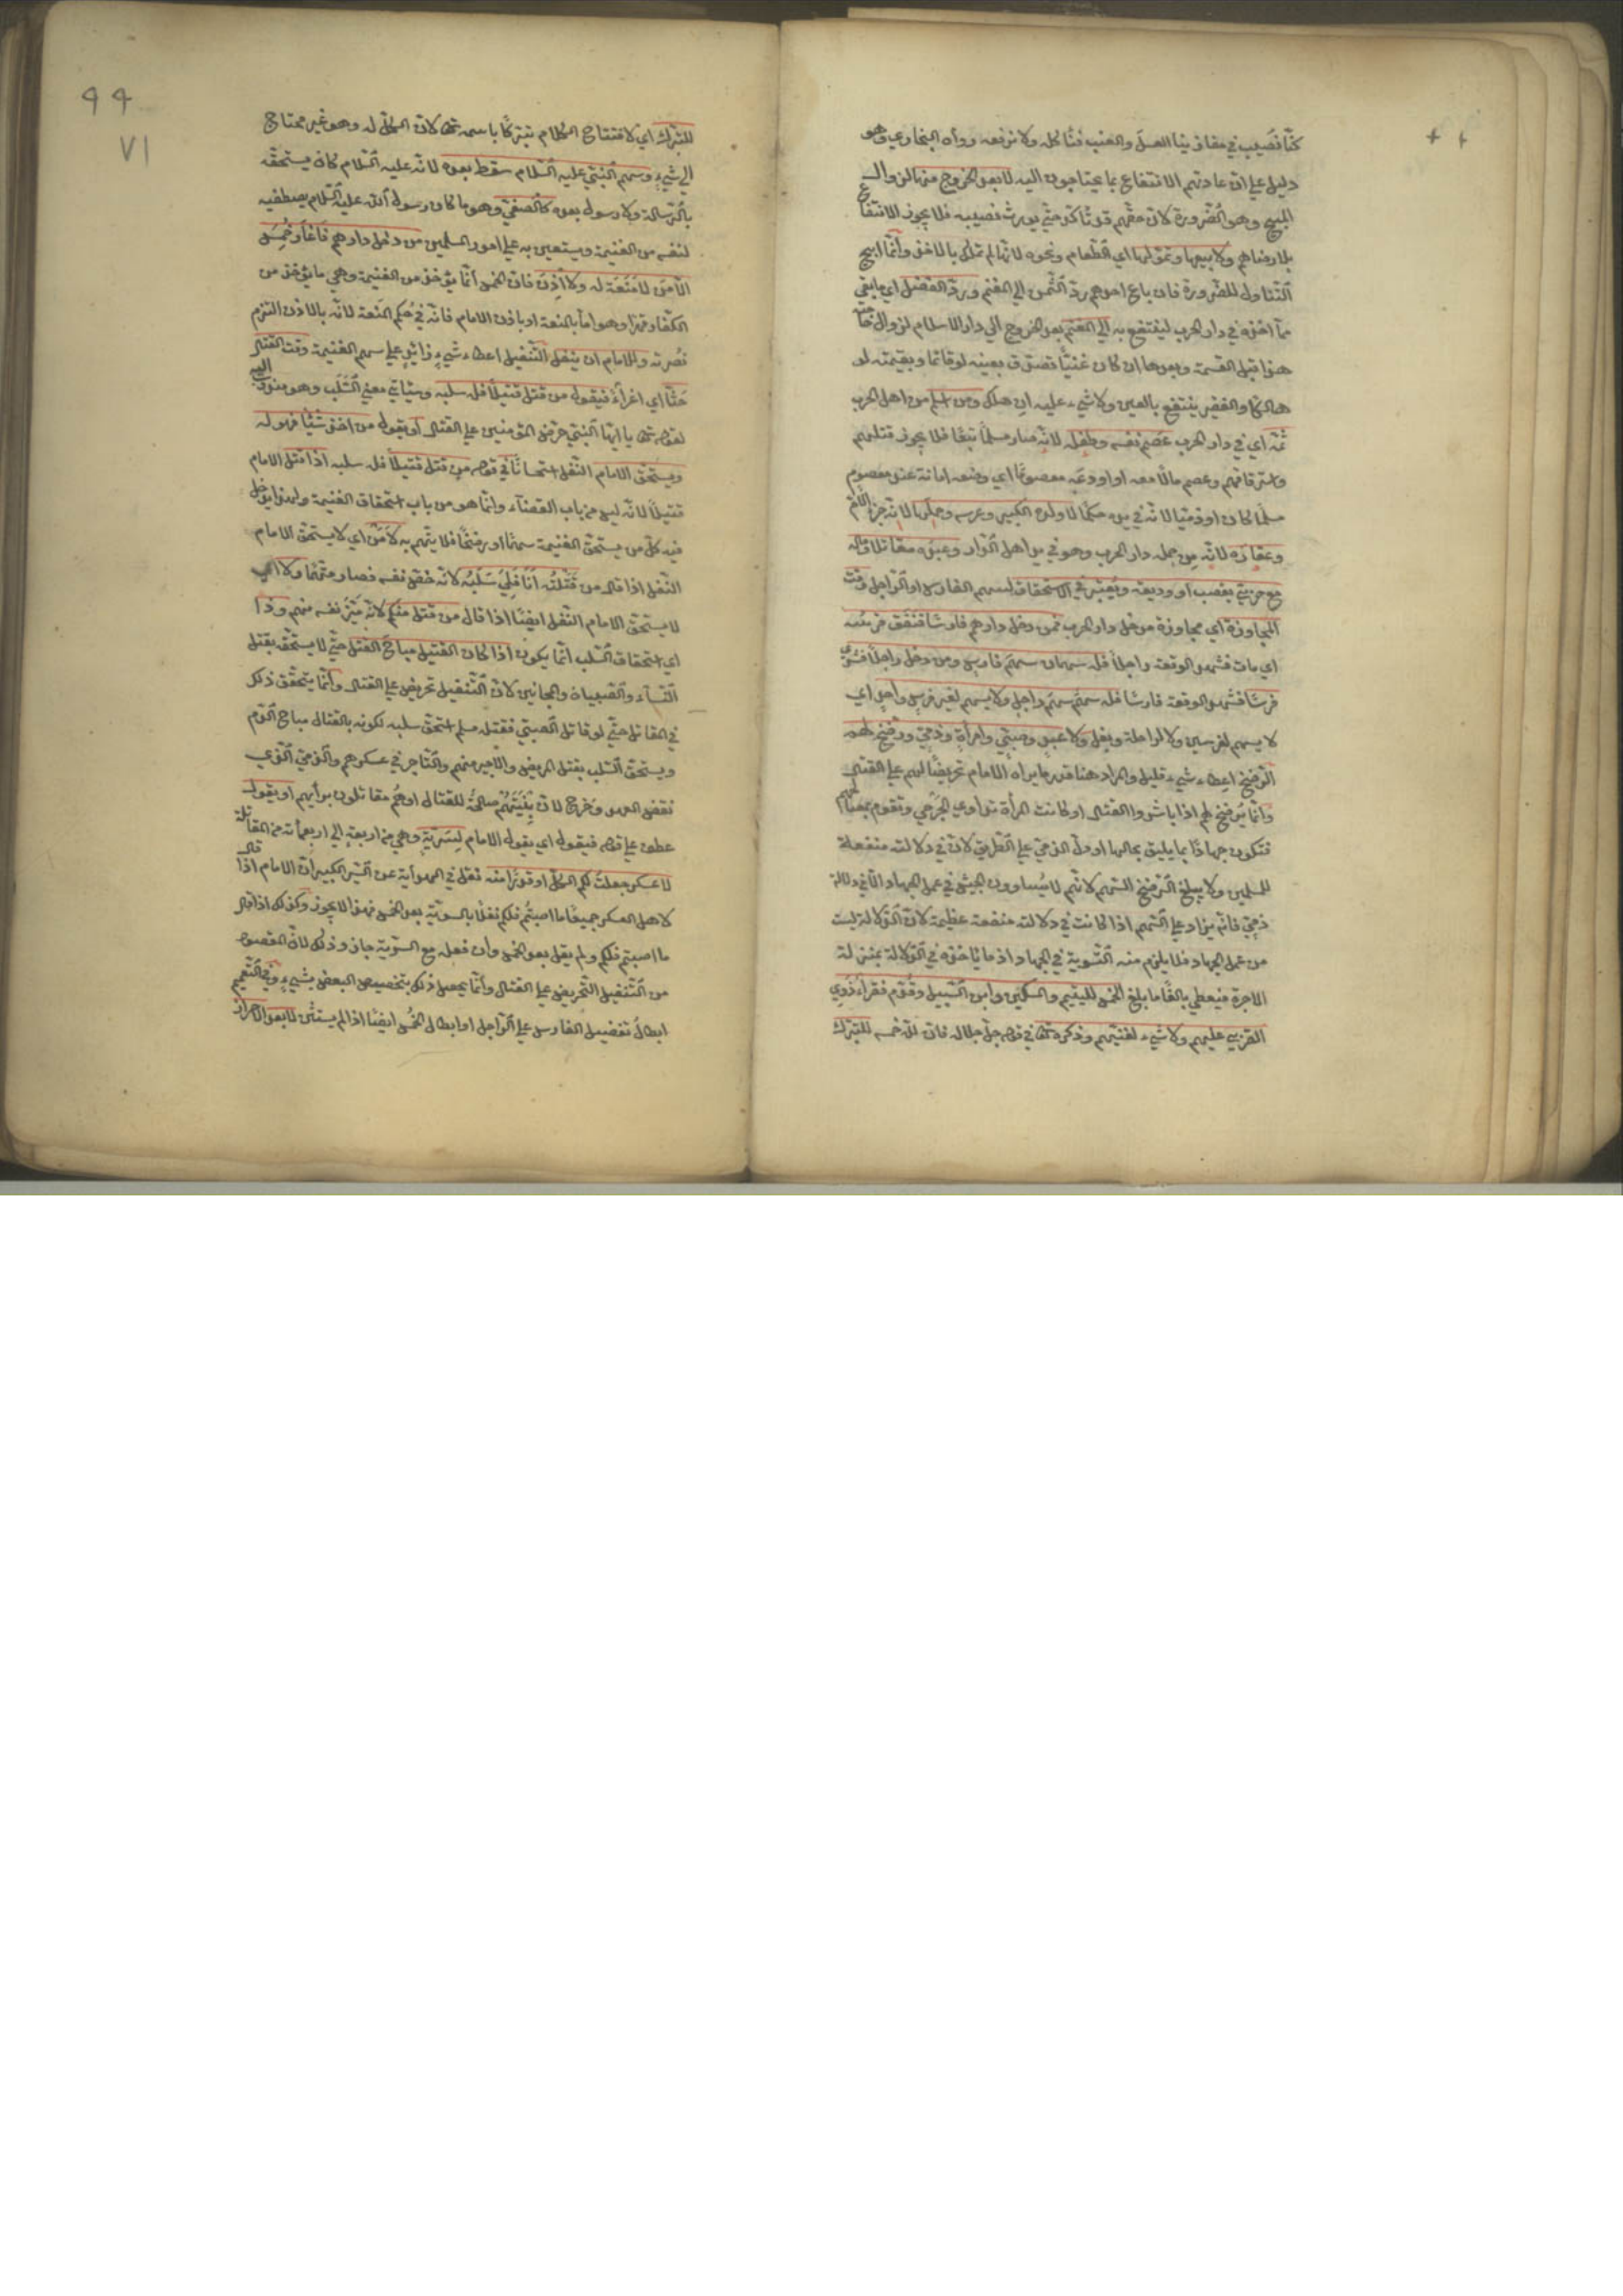 كنّا نصيب في مغازينا العسل والعنب فنأكله ولا نرفعه رواه البخاري وهو
دليل على ان عادتهم الانتفاع بما يحتاجون اليه لا بعد الخروج منها لزوال
المبيح وهو الضرورة لان حقهم قد تأكد حتى يورث نصيبه فلا يجوز الانتفاع
بلا رضاهم ولا بيعها وتموّلها اي الطعام ونحوه لانها لم تملك بالاخذ وانّما ابيح
التناول للضرورة فان باع احدهم ردّ الثمن الى المغنم وردّ الفضل اي ما بقي
مما اخذه في دار الحرب لينتفع به الى المغنم بعد الخروج الى دار الاسلام لزوال حاجته
هذا قبل القسمة وبعدها ان كان غنيّا تصدق بعينه لو قائما وبقيمته لو
هالكا والفقير ينتفع بالعين ولا شيء عليه ان هلك ومن اسلم من اهل الحرب
ثمّه اي في دار الحرب عصم نفسه وطفله لانه صار مسلما تبعا فلا يجوز قتلهم
واسترقاقهم وعصم مالا معه او اودعه معصوما اي وضعه امانة عند معصوم
مسلما كان او ذميا لانه في يده حكما لا ولده الكبير وعرسه وحملها لانه جزء الام
وعقاره لانه من جملة دار الحرب وهو في يد اهل الدار وعبده مقاتلا وماله
مع حربي بغصب او وديعة ويعتبر في الاستحقاق لسهم الفارس او الراجل وقت
المجاوزة اي مجاوزة مدخل دار الحرب فمن دخل دارهم فارسا فنفق فرسه
اي مات فشهد الوقعة راجلا فله سهمان سهم فارس ومن دخل راجلا فشرى
فرسا فشهد الوقعة فارسا فله سهم سهم راجل ولا يسهم لغير فرس واحد اي
لا يسهم لفرسين ولا لراحلة وبغل ولا عبد وصبي وامرأة وذمي ورضخ لهم
الرضخ اعطاء شيء قليل والمراد هنا قدر ما يراه الامام تحريضا لهم على القتال
وانما يرضخ لهم اذا باشروا القتال او كانت المرأة تداوي الجرحى وتقوم بمصالحهم
فتكون جهادا بما يليق بحالها او دلّ الذمي على الطريق لان في دلالته منفعة
للمسلمين ولا يبلغ الرضخ السهم لانهم لا يساوون الجيش في عمل الجهاد الا في دلالة
ذمي فانه يزاد على السهم اذا كانت في دلالته منفعة عظيمة لان الدلالة ليست
من عمل الجهاد فلا يلزم منه التسوية في الجهاد اذ ما يأخذه في الدلالة بمنزلة
الاجرة فيعطى بالغا ما بلغ الخمس لليتيم والمسكين وابن السبيل وقدّم فقراء ذوي
القربى عليهم ولا شيء لغنيهم وذكره تعالى في قوله جل جلاله فان لله خمسه للتبرك
٩٩
٧١
للتبرك اي لافتتاح الكلام تبركا باسمه تعالى لان الكل له وهو غير محتاج
الى شيء وسهم النبي عليه السلام سقط بعده لانه عليه السلام كان يستحقه
بالرسالة ولا رسول بعده كالصفي وهو ما كان رسول الله عليه السلام يصطفيه
لنفسه من الغنيمة ويستعين به على امور المسلمين من دخل دارهم فاغار خمس
الا من لا منعة له ولا اذن فان الخمس انما يؤخذ من الغنيمة وهي ما يؤخذ من
الكفار قهرا وهو اما بالمنعة او باذن الامام فانه في حكم المنعة لانه بالاذن التزم
نصرته وللامام ان ينفل التنفيل اعطاء شيء زائد على سهم الغنيمة وقت القتال
حثّا اي اغراء فيقول من قتل قتيلا فله سلبه وسيأتي معنى السلب وهو مندوب اليه
لقوله تعالى يا ايها النبي حرّض المؤمنين على القتال او يقول من اخذ شيئا فهو له
ويستحق الامام النفل استحسانا في قوله من قتل قتيلا فله سلبه اذا قتل الامام
قتيلا لانه ليس من باب القضاء وانما هو من باب استحقاق الغنيمة ولهذا يدخل
فيه كل من يستحق الغنيمة سهما او رضخا فلا يتهم به لا من اي لا يستحق الامام
النفل اذا قال من قتلته انا فلي سلبه لانه خص نفسه فصار متهما ولا اي
لا يستحق الامام النفل ايضا اذا قال من قتل منكم لانه ميّز نفسه منهم وذا
اي استحقاق السلب انما يكون اذا كان القتيل مباح القتل حتى لا يستحق بقتل
النساء والصبيان والمجانين لان التنفيل تحريض على القتال وانما يتحقق ذلك
في المقاتل حتى لو قاتل الصبي فقتله مسلم استحق سلبه لكونه بالقتال مباح الدم
ويستحق السلب بقتل المريض والاجير منهم والتاجر في عسكرهم والذمي الذي
نقض العهد وخرج لان بنيتهم صالحة للقتال او هم مقاتلون برأيهم او يقول
عطف على قوله فيقول اي يقول الامام لسرية وهي من اربعة الى اربعمائة من المقاتلة
لا عسكر جعلت لكم الكل او قدرا منه نقل في النهاية عن السير الكبير ان الامام اذا قال
لاهل العسكر جميعا ما اصبتم فلكم نفلا بالسوية بعد الخمس فهذا لا يجوز وكذلك اذا قال
ما اصبتم فلكم ولم يقل بعد الخمس وان فعله مع السرية جاز وذلك لان المقصود
من التنفيل التحريض على القتال وانما يحصل ذلك بتخصيص البعض بشيء وفي التعميم
ابطال تفضيل الفارس على الراجل او ابطال الخمس ايضا اذا لم يستثن لا بعد الاحراز